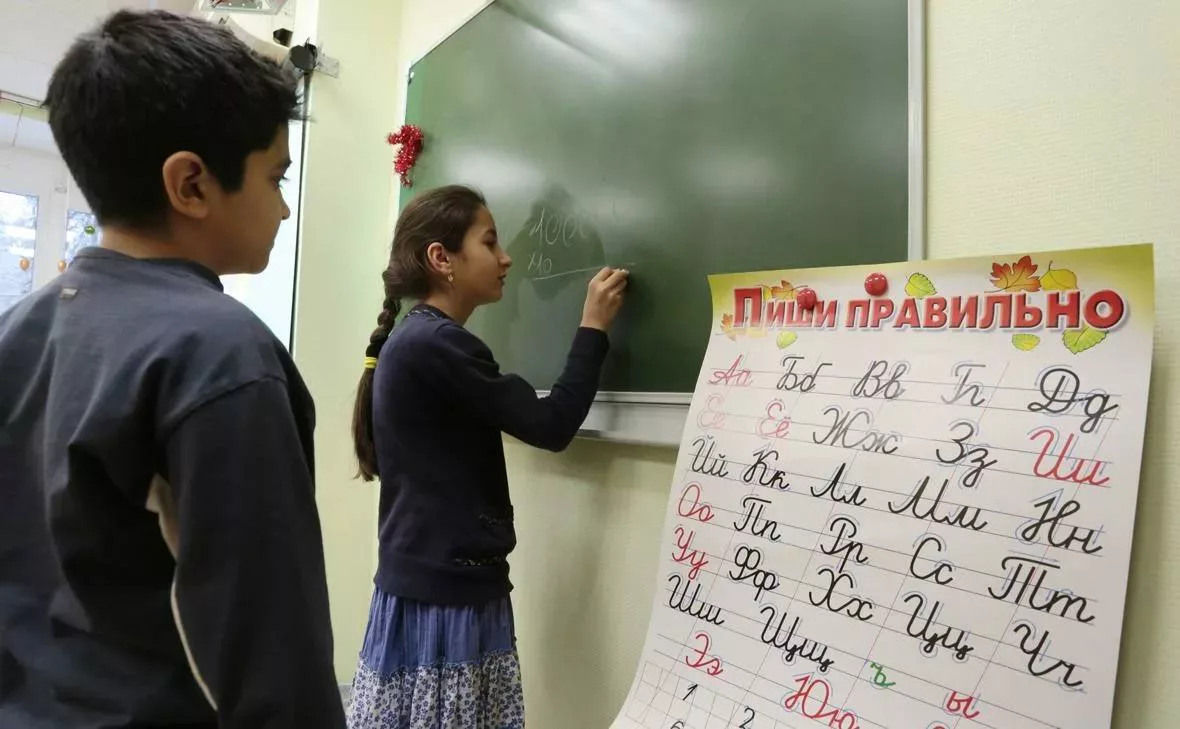 Пиши правильно
Аа Бб Вв Дд
Ее Ёё Жж Зз Ии
Йй Кк Лл Мм Нн
Оо Пп Рр Сс Тт
Уу Фф Хх Цц Чч
Шш Щщ ъ ы
Ээ Юю
1 2